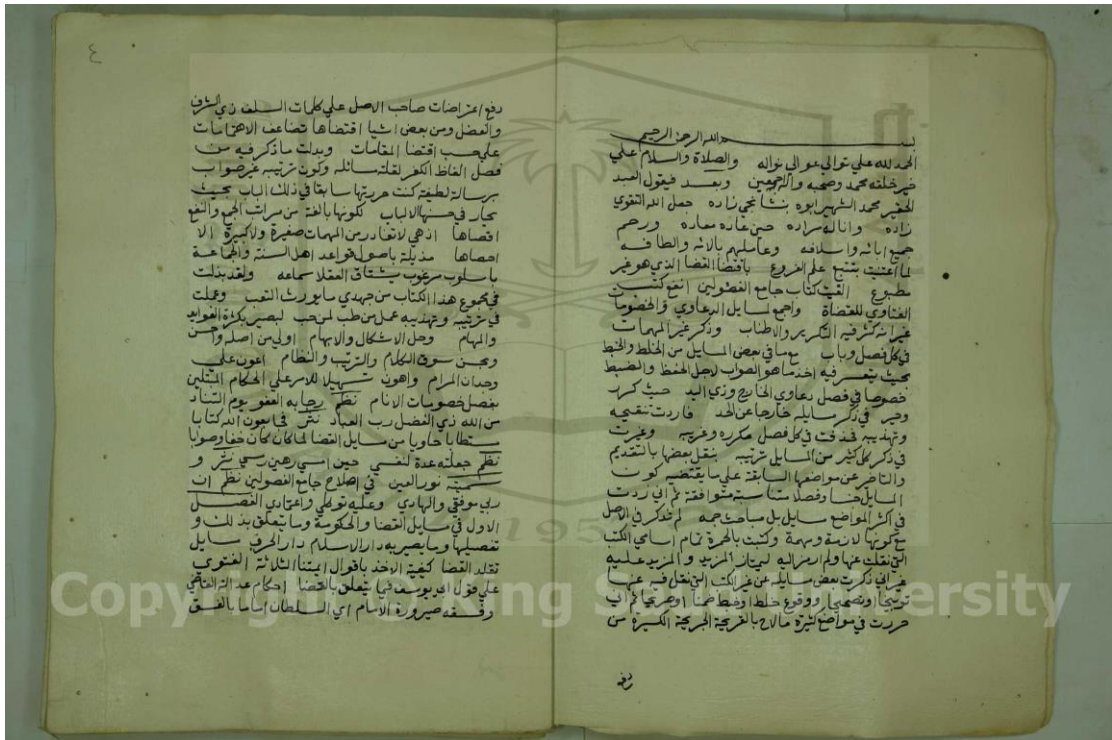 بسم الله الرحمن الرحيم
الحمد لله علي توالي عوالي نواله والصلاة والسلام علي
خير خلقه محمد وصحبه واله اجمعين وبعد فيقول العبد
الحقير محمد الشهير ابوه بنشانجي زاده جعل الله التقوي
زاده واناله مراده حين عاده معاده ورحم
جميع ابائه واسلافه وعاملهم بالائه والطافه
لما اعتنيت بتتبع علم الفروع باقتضا القضا الذي هو غير
مطبوع الفيت كتاب جامع الفصولين انفع كتب
الفتاوي للقضاة واجمع لمسايل الدعاوي والخصومات
غير انه كثر فيه التكرير والاطناب وذكر غير المهمات
في كل فصل وباب مع ما في بعض المسايل من الخلط والخبط
بحيث يتعسر فيه اخذ ما هو الصواب لاجل الحفظ والضبط
خصوصا في فصل دعاوي الخارج وذي اليد حيث كرر
وحرر في ذكر مسايله خارجا عن الحد فاردت تنقيحه
وتهذيبه فحذفت في كل فصل مكرره وغريبه وغيرت
في ذكر كل كثير من المسايل ترتيبه بنقل بعضها بالتقديم
والتاخير عن مواضعها السابقة علي ما يقتضيه كون
المسايل جنسا وفصلا متناسبة متوافقة ثم اني زدت
في اكثر المواضع مسايل بل مباحث جمه لم تذكر في الاصل
مع كونها لازمة ومهمة وكتبت بالحمرة تمام اسامي الكتب
التي نقلت عنها ولم ارمز اليه ليمتاز المزيد والمزيد عليه
غير اني ذكرت بعض مسايله عن غير الكتب التي نقل فيه عنها
توضيحا وتصحيحا ووقوع خلط وخبط ضمنا او صريحا ثم اني
حررت في مواضع كثيرة ما لاح بالقريحة الجريحة الكسيرة من
دفع
٤
دفع اعتراضات صاحب الاصل علي كلمات السلف ذي الشرف
والفضل ومن بعض اشيا اقتضاها تضاعف الاهتمامات
علي حسب اقتضا المقامات وبدلت ما ذكر فيه من
فصل الفاظ الكفر لقلة مسائله وكون ترتيبه غير صواب
برسالة لطيفة كنت حررتها سابقا في ذلك الباب بحيث
يحار في حسنها الالباب لكونها بالغة من مراتب الجمع والنفع
اقصاها اذ هي لا تغادر من المهمات صغيرة ولا كبيرة الا
احصاها مذيلة باصول قواعد اهل السنة والجماعة
باسلوب مرغوب يشتاق العقلا سماعه ولقد بذلت
في مجموع هذا الكتاب من جهدي ما يورث التعب وعملت
في ترتيبه وتهذيبه عمل من طب لمن حب ليصير بكثرة الفوايد
والمهام وحل الاشكال والابهام اولي من اصله واحسن
وبحسن سوق الكلام والترتيب والنظام اعون علي
وجدان المرام واهون تسهيلا للامر علي الحكام المبتلين
بفصل خصومات الانام نظم رجابه العفو يوم التناد
من الله ذي الفضل رب العباد نثر فجا بعون الله كتابا
مستطابا حاويا من مسايل القضا لما كان كان خفا وصوابا
نظم جعلته عدة لنفسي حين امسي رهين رمسي نثر و
سميته نور العين في اصلاح جامع الفصولين نظم ان
ربي موفقي والهادي وعليه توكلي واعتمادي الفصل
الاول في مسايل القضا والحكومة وما يتعلق بذلك و
تفصيلها وما يصير به دار الاسلام دار الحرب مسايل
تقلد القضا كيفية الاخذ باقوال ايمتنا الثلاثة الفتوي
علي قول ابي يوسف فيما يتعلق بالقضا احكام عدالة القاضي
وفسقه صيرورة الامام اي السلطان اماما بالفسق
Copyright © King Saud University
1957